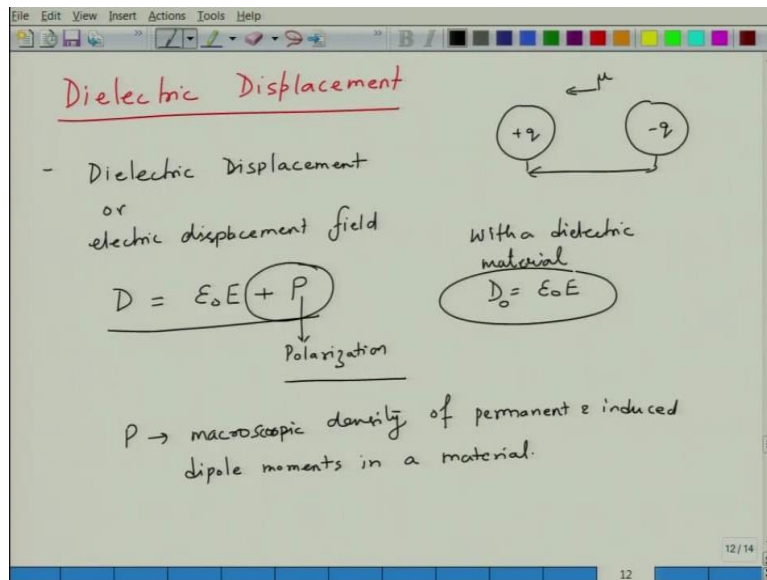 File Edit View Insert Actions Tools Help
B I
Dielectric Displacement
μ
+q -q
- Dielectric Displacement
or
electric dispacement field
With a dielectric
material
D = ε₀E + P
D₀ = ε₀E
Polarization
P → macroscopic density of permanent & induced
dipole moments in a material.
12/14
12